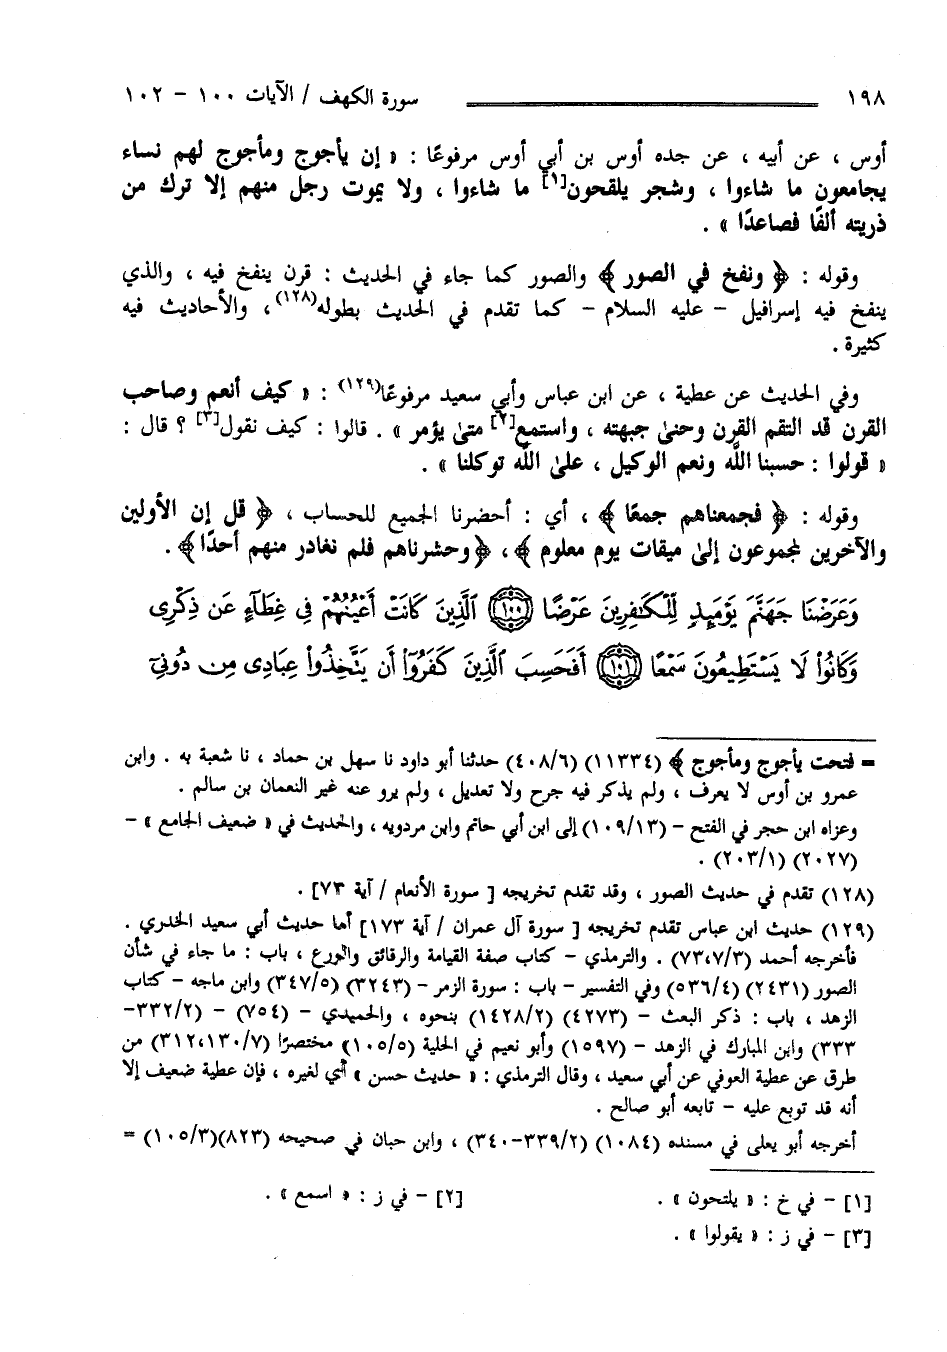 ١٩٨ سورة الكهف / الآيات ١٠٠ – ١٠٢
أوس ، عن أبيه ، عن جده أوس بن أبي أوس مرفوعًا : « إن يأجوج ومأجوج لهم نساء
يجامعون ما شاءوا ، وشجر يلقحون[١] ما شاءوا ، ولا يموت رجل منهم إلا ترك من
ذريته ألفًا فصاعدًا » .
وقوله : ﴿ ونفخ في الصور ﴾ والصور كما جاء في الحديث : قرن ينفخ فيه ، والذي
ينفخ فيه إسرافيل – عليه السلام – كما تقدم في الحديث بطوله(١٢٨)، والأحاديث فيه
كثيرة .
وفي الحديث عن عطية ، عن ابن عباس وأبي سعيد مرفوعًا(١٢٩) : « كيف أنعم وصاحب
القرن قد التقم القرن وحنىٰ جبهته ، واستمع[٢] متىٰ يؤمر » . قالوا : كيف نقول[٣] ؟ قال :
« قولوا : حسبنا اللَّه ونعم الوكيل ، علىٰ اللَّه توكلنا » .
وقوله : ﴿ فجمعناهم جمعًا ﴾ ، أي : أحضرنا الجميع للحساب ، ﴿ قل إن الأولين
والآخرين لمجموعون إلىٰ ميقات يوم معلوم ﴾، ﴿وحشرناهم فلم نغادر منهم أحدًا﴾ .
وَعَرَضْنَا جَهَنَّمَ يَوْمَئِذٍ لِّلْكَٰفِرِينَ عَرْضًا ١٠٠ ٱلَّذِينَ كَانَتْ أَعْيُنُهُمْ فِى غِطَآءٍ عَن ذِكْرِى
وَكَانُوا۟ لَا يَسْتَطِيعُونَ سَمْعًا ١٠١ أَفَحَسِبَ ٱلَّذِينَ كَفَرُوٓا۟ أَن يَتَّخِذُوا۟ عِبَادِى مِن دُونِىٓ
= فتحت يأجوج ومأجوج ﴾ (١١٣٣٤) (٤٠٨/٦) حدثنا أبو داود نا سهل بن حماد ، نا شعبة به . وابن
عمرو بن أوس لا يعرف ، ولم يذكر فيه جرح ولا تعديل ، ولم يرو عنه غير النعمان بن سالم .
وعزاه ابن حجر في الفتح – (١٠٩/١٣) إلى ابن أبي حاتم وابن مردويه ، والحديث في « ضعيف الجامع » –
(٢٠٢٧) (٢٠٣/١) .
(١٢٨) تقدم في حديث الصور ، وقد تقدم تخريجه [ سورة الأنعام / آية ٧٣] .
(١٢٩) حديث ابن عباس تقدم تخريجه [ سورة آل عمران / آية ١٧٣] أما حديث أبي سعيد الخدري .
فأخرجه أحمد (٧/٣، ٧٣) . والترمذي – كتاب صفة القيامة والرقائق والورع ، باب : ما جاء في شأن
الصور (٢٤٣١) (٥٣٦/٤) وفي التفسير – باب : سورة الزمر – (٣٢٤٣) (٣٤٧/٥) وابن ماجه – كتاب
الزهد ، باب : ذكر البعث – (٤٢٧٣) (١٤٢٨/٢) بنحوه ، والحميدي – (٧٥٤) – (٣٣٢/٢–
٣٣٣) وابن المبارك في الزهد – (١٥٩٧) وأبو نعيم في الحلية (١٠٥/٥) مختصرًا (١٣٠/٧، ٣١٢) من
طرق عن عطية العوفي عن أبي سعيد ، وقال الترمذي : « حديث حسن » أي لغيره ، فإن عطية ضعيف إلا
أنه قد توبع عليه – تابعه أبو صالح .
أخرجه أبو يعلى في مسنده (١٠٨٤) (٣٣٩/٢–٣٤٠) ، وابن حبان في صحيحه (٨٢٣)(١٠٥/٣) =
[١] – في خ : « يلتحون » . [٢] – في ز : « اسمع » .
[٣] – في ز : « يقولوا » .